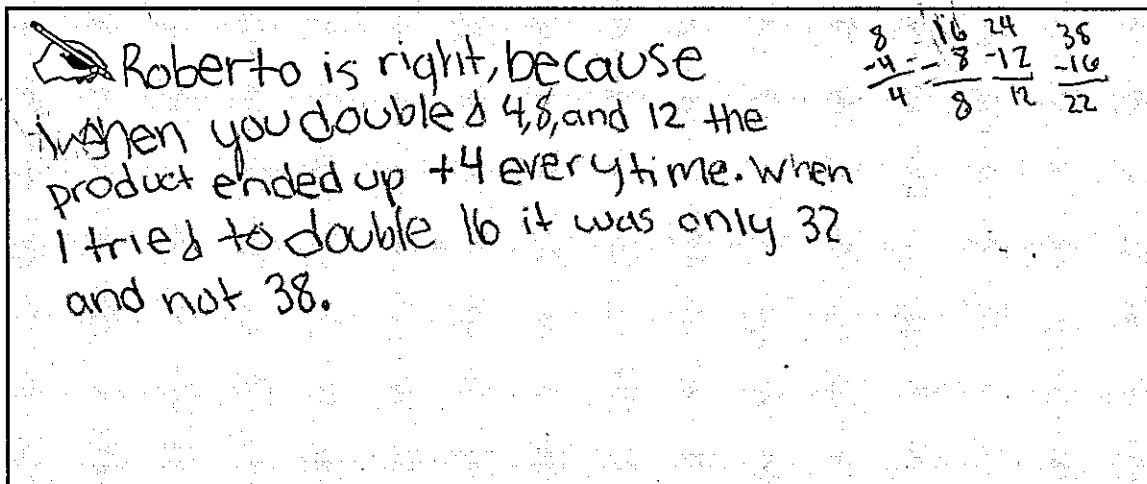 Roberto is right, because
when you doubled 4,8, and 12 the
product ended up +4 everytime. When
I tried to double 16 it was only 32
and not 38.
8 16 24 38
-4 -8 -12 -16
4 8 12 22